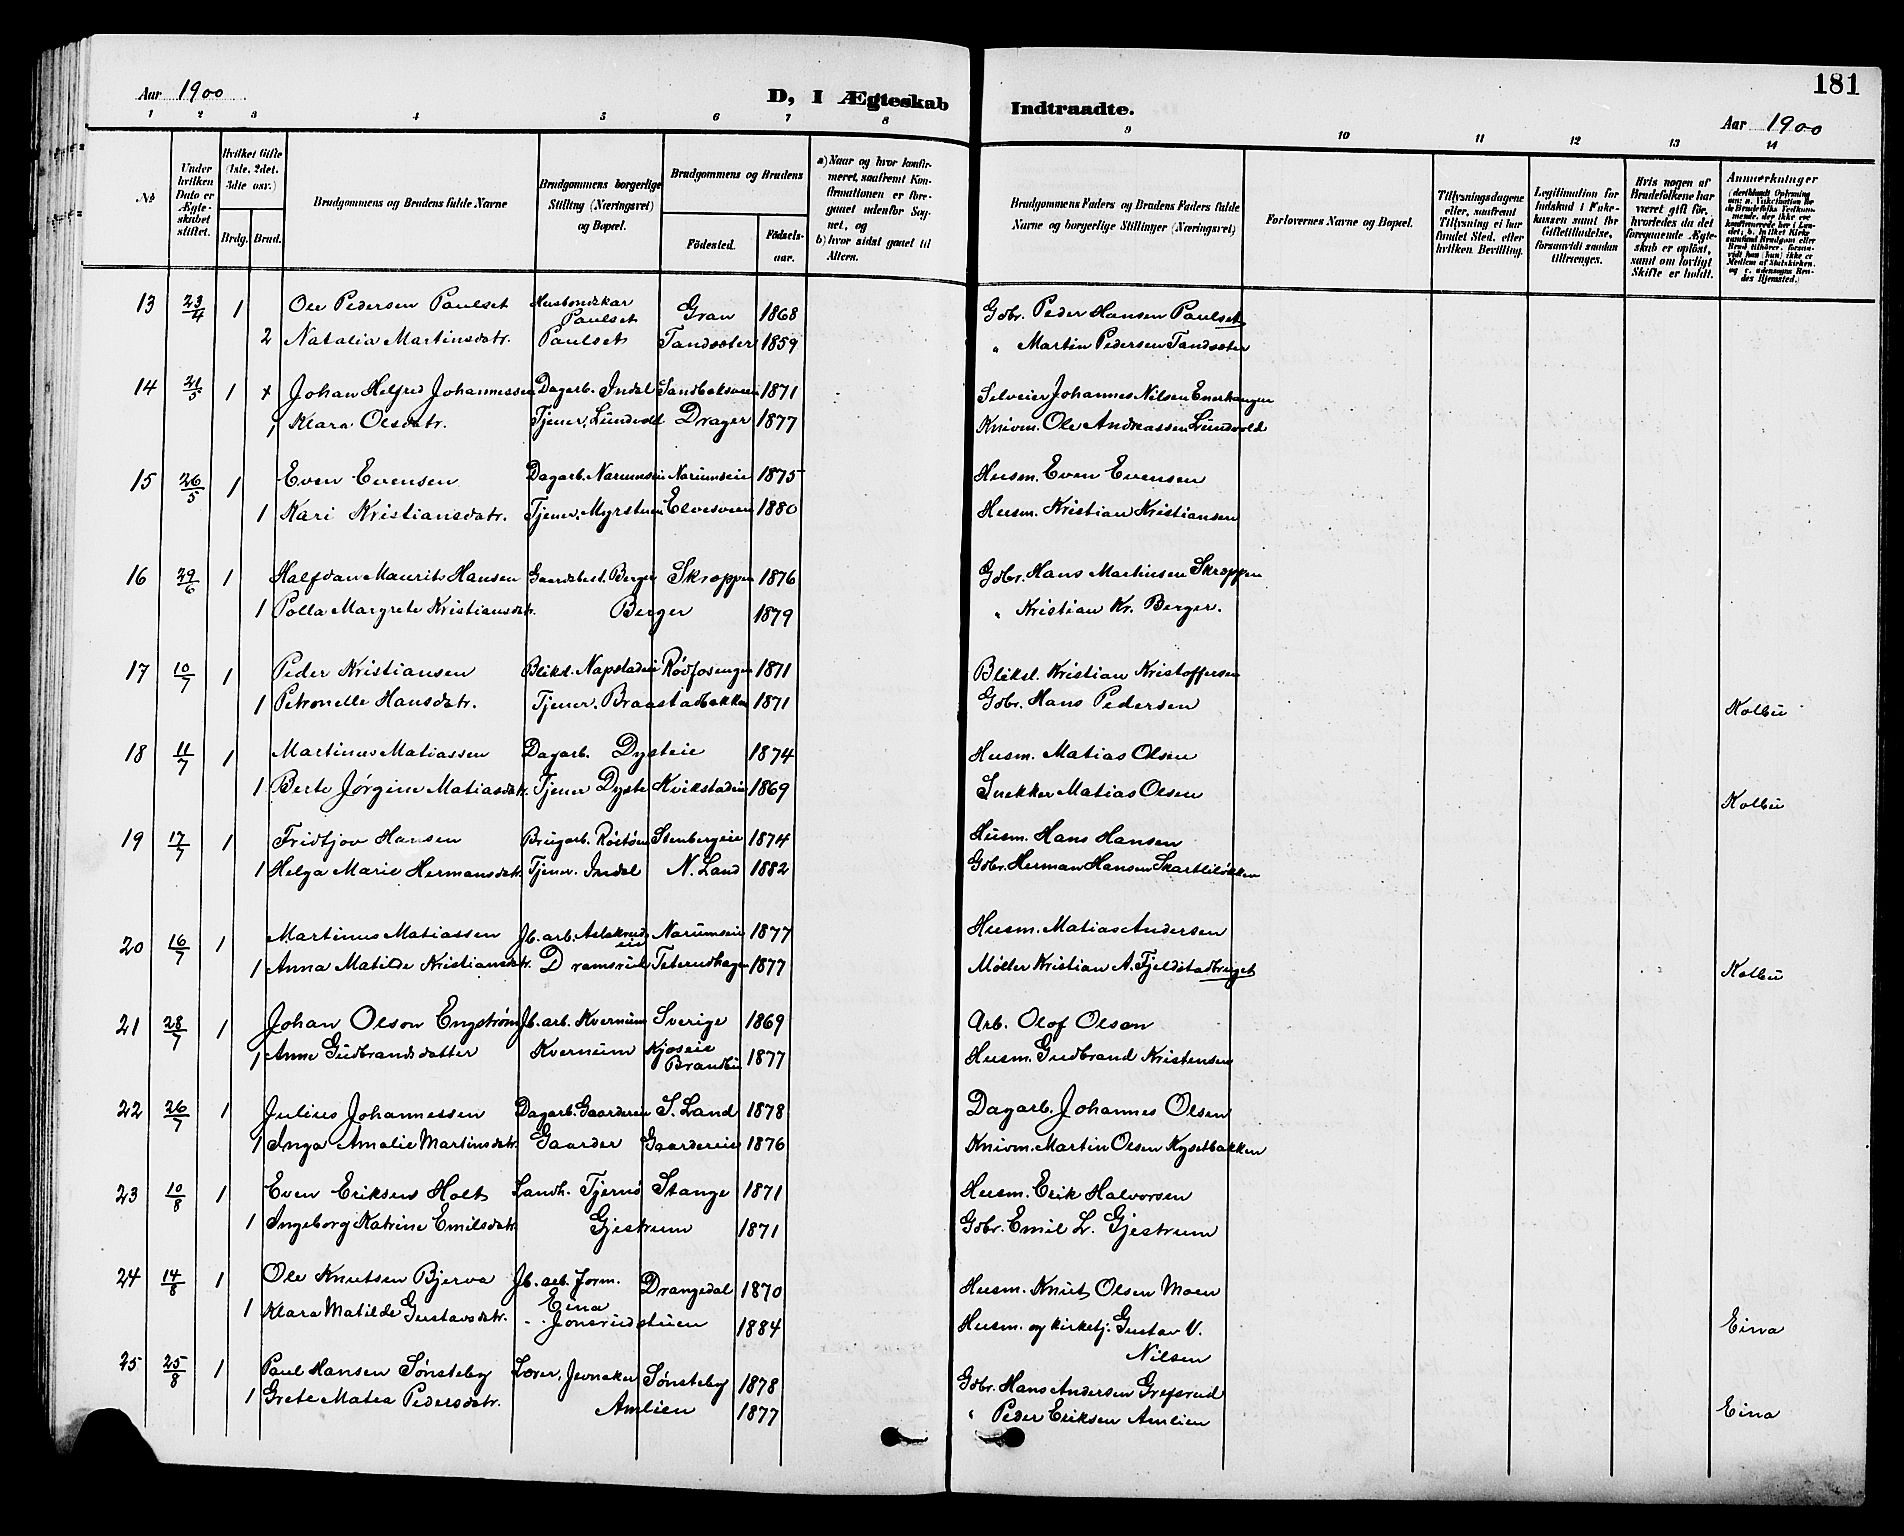 181
Aar 1900 D, I Ægteskab Indtraadte. Aar 1900
1 2 3 4 5 6 7 8 9 10 11 12 13 14
No
Under hvilken Dato er Ægteskabet stiftet.
Hvilket Gifte (1ste, 2det, 3dte osv.)
Brdg. Brud.
Brudgommens og Brudens fulde Navne
Brudgommens borgerlige Stilling (Næringsvei) og Bopæl.
Brudgommens og Brudens
Födested. Födselsaar.
a) Naar og hvor konfirmeret, saafremt Konfirmationen er foregaaet udenfor Sognet, og
b) hvor sidst gaaet til Alters.
Brudgommens Faders og Brudens Faders fulde Navne og borgerlige Stillinger (Næringsvei)
Forlovernes Navne og Bopæl.
Tillysningsdagene eller, saafremt Tillysning ei har fundet Sted, efter hvilken Bevilling.
Legitimation for Indskud i Enkekassen samt for Giftetilladelse, forsaavidt saadan tiltrænges.
Hvis nogen af Brudefolkene har været gift för, hvorledes da det foregaaende Ægteskab er oplöst, samt om lovligt Skifte er holdt.
Anmærkninger
13 23/4 1 Ole Pedersen Paulset Husbondskar Paulset Gran 1868 Gbr. Peder Hansen Paulset
2 Natalia Martinsdatr. Paulset Tandsæter 1859 " Martin Pedersen Tandsæter
14 21/5 1 Johan Helfred Johannessen Dagarb. Indal Sandbaksveen 1871 Selveier Johannes Nilsen Enerhaugen
1 Klara Olsdatr. Tjener, Lundvold Drager 1877 Knivm. Ole Andreassen Lundvold
15 26/5 1 Even Evensen Dagarb. Narumseie Narumseie 1875 Husm. Even Evensen
1 Kari Kristiansdatr. Tjener, Myrstuen Elvesveen 1880 Husm. Kristian Kristiansen
16 29/6 1 Halfdan Maurits Hansen Gaardbest. Berger Skroppen 1876 Gbr. Hans Martinsen Skroppen
1 Polla Margrete Kristiansdtr. Berger 1879 " Kristian Kr. Berger.
17 10/7 1 Peder Kristiansen Bliksl. Napstadeie Rødfosengen 1871 Bliksl. Kristian Kristoffersen
1 Petronelle Hansdatr. Tjener. Braastadbakken 1871 Gbr. Hans Pedersen Kolbu
18 11/7 1 Martinus Matiassen Dagarb. Dysteie 1874 Husm. Matias Olsen
1 Berte Jørgine Matiasdatr. Tjener Dyste Kvikstadeie 1869 Snekker Matias Olsen Kolbu
19 17/7 1 Fridtjov Hansen Brugarb. Stenbergeie 1874 Husm. Hans Hansen
1 Helga Marie Hermansdatr. Tjener. Indal N. Land 1882 Gbr. Herman Hansen Skartliløkken
20 16/7 1 Martinus Matiassen Jb. arb. Aslakrudeie Narumseie 1877 Husm. Matias Andersen
1 Anna Matilde Kristiansdtr. Dramsrud Teterudhagen 1877 Møller Kristian A. Fjeldstadbruget Kolbu
21 28/7 1 Johan Olson Engstrøm Jb. arb. Kvernum Sverige 1869 Arb. Olof Olson
1 Anne Gudbrandsdatter Kvernum Kjoseie Brandbu 1877 Husm. Gudbrand Kristensen
22 26/7 1 Julius Johannessen Dagarb. Gaardereie S. Land 1878 Dagarb. Johannes Olsen
1 Inga Amalie Martinsdatr. Gaarder Gaardereie 1876 Knivm. Martin Olsen Kysetbakken
23 10/8 1 Even Eriksen Holt Landh. Tjernø Stange 1871 Husm. Erik Halvorsen
1 Ingeborg Katrine Emilsdatr. Gjestrum 1871 Gbr. Emil L. Gjestrum
24 14/8 1 Ole Knutsen Bjerva Jb. arb. form. Eina Drangedal 1870 Husm. Knut Olsen Moen
1 Klara Matilde Gustavsdatr. Jonsrudstuen 1884 Husm. og kirketj. Gustav V. Nilsen Eina
25 25/8 1 Paul Hansen Sønsteby Lærer, Jevnaker Sønsteby 1878 Gbr. Hans Andersen Grefsrud
1 Grete Matea Pedersdatr. Amlien 1877 " Peder Eriksen Amlien Eina